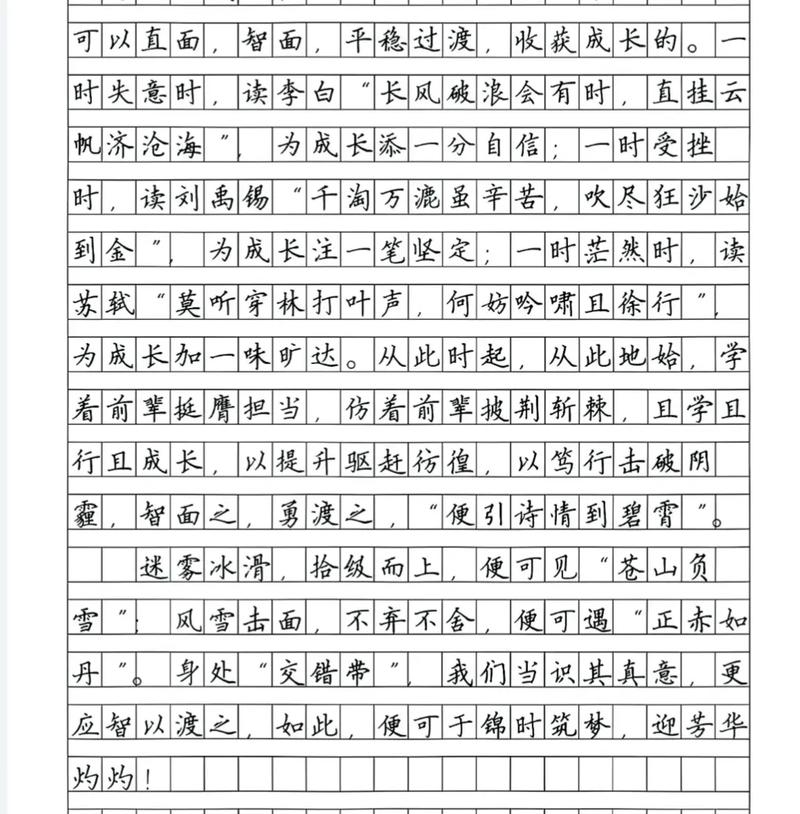 可以直面，智面，平稳过渡，收获成长的。一
时失意时，读李白“长风破浪会有时，直挂云
帆济沧海”，为成长添一分自信；一时受挫
时，读刘禹锡“千淘万漉虽辛苦，吹尽狂沙始
到金”，为成长注一笔坚定；一时茫然时，读
苏轼“莫听穿林打叶声，何妨吟啸且徐行”，
为成长加一味旷达。从此时起，从此地始，学
着前辈挺膺担当，仿着前辈披荆斩棘，且学且
行且成长，以提升驱赶彷徨，以笃行击破阴
霾，智面之，勇渡之，“便引诗情到碧霄”。
迷雾冰滑，拾级而上，便可见“苍山负
雪”；风雪击面，不弃不舍，便可遇“正赤如
丹”。身处“交错带”，我们当识其真意，更
应智以渡之，如此，便可于锦时筑梦，迎芳华
灼灼！